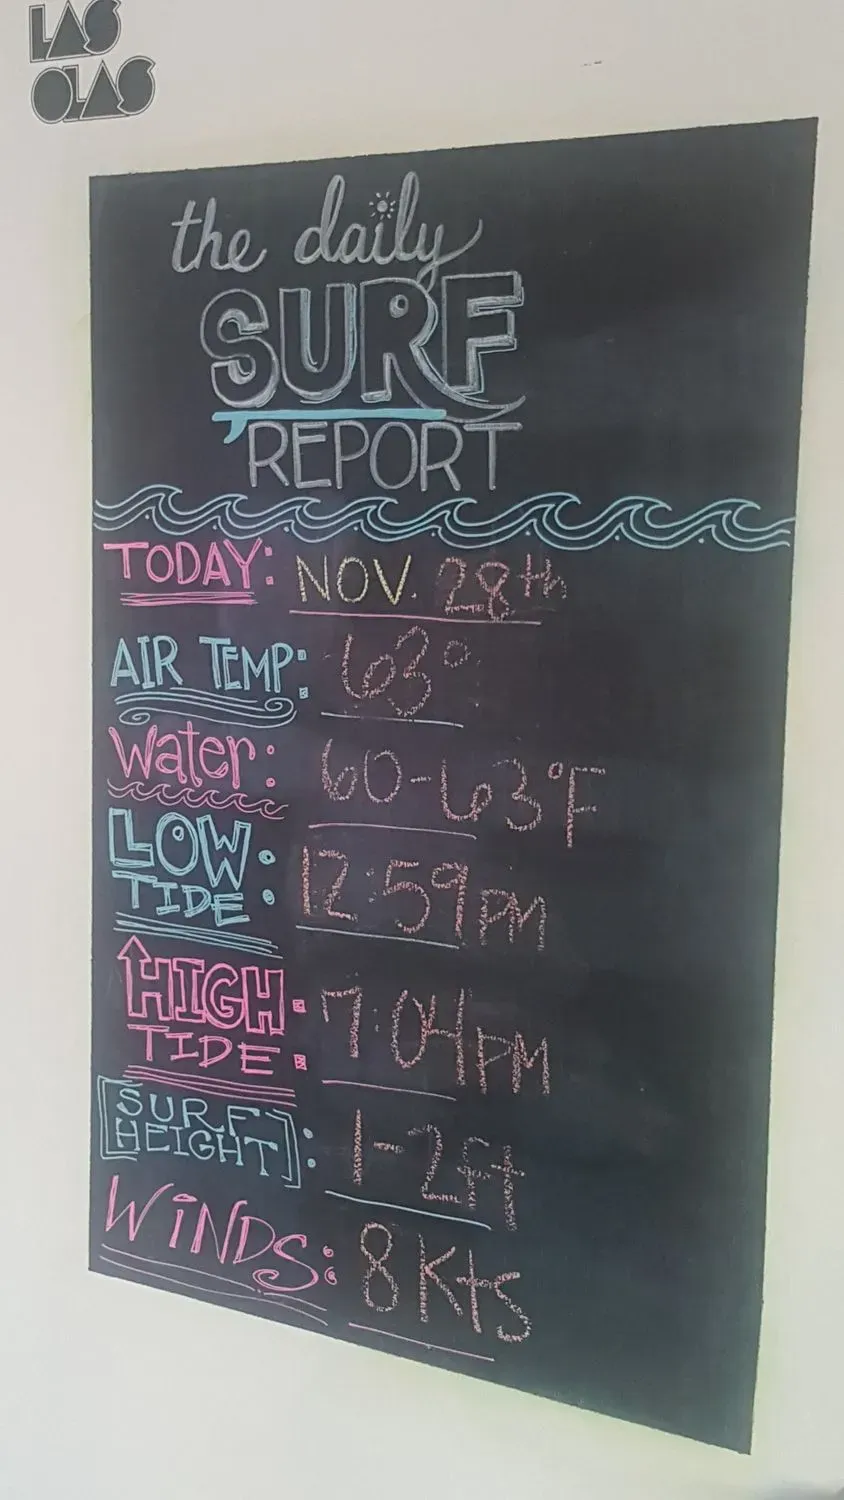 LAS
OLAS
the daily
SURF
REPORT
TODAY: NOV. 28th
AIR TEMP: 63°
Water: 60-63°F
LOW
TIDE: 12:59PM
HIGH
TIDE: 7:04PM
[SURF
HEIGHT]: 1-2ft
WiNDS: 8 Kts